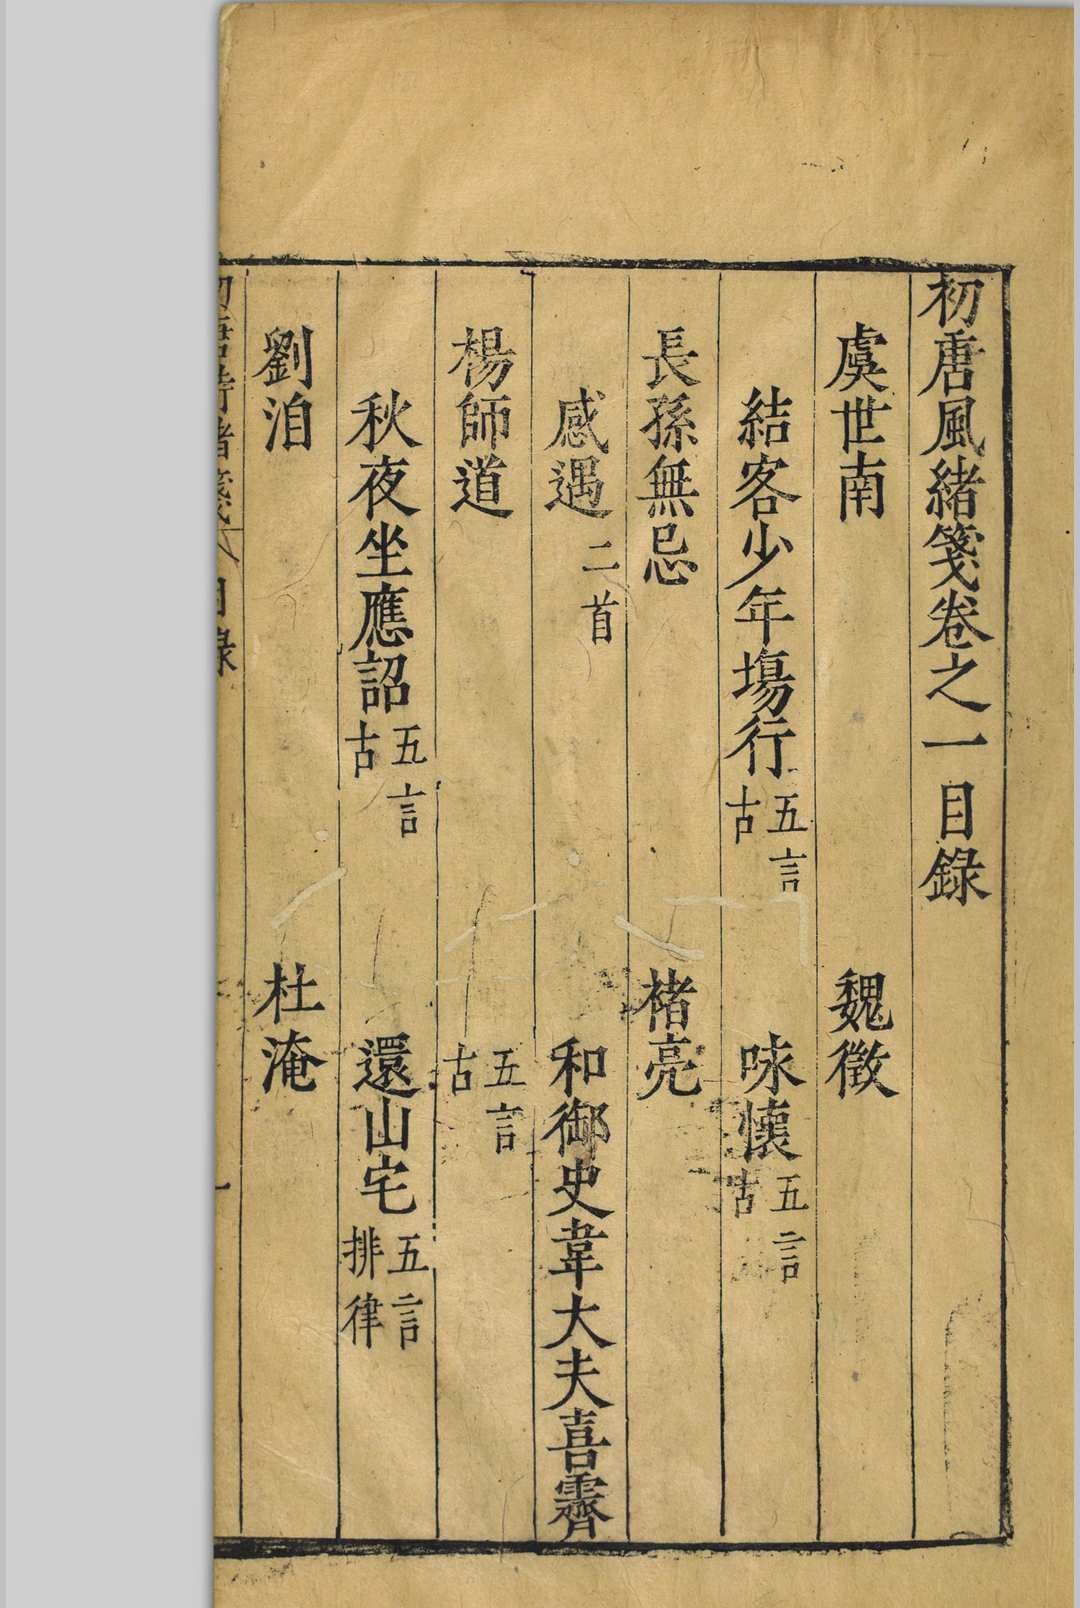 初唐風緒箋卷之一目錄
虞世南　魏徵
結客少年塲行五言古　咏懷五言古
長孫無忌　褚亮
感遇二首　和御史韋大夫喜霽
楊師道　五言古
秋夜坐應詔五言古　還山宅五言排律
劉洎　杜淹
目錄　一